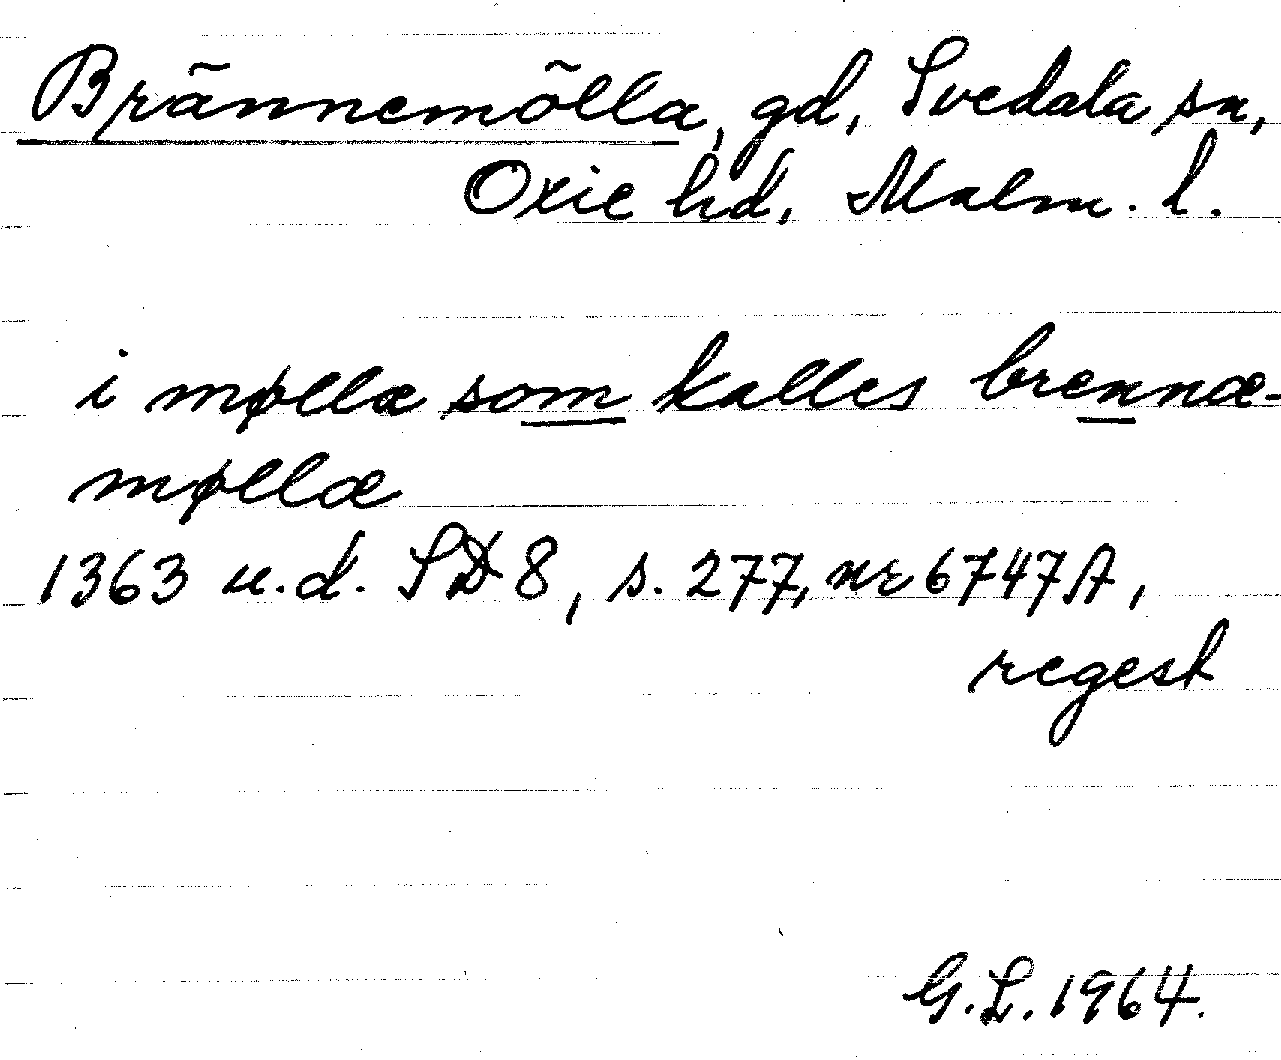 Brännemölla, gd, Svedala sn,
Oxie hd, Malm. l.
i møllæ som kalles brennæ-
møllæ
1363 u.d. SD 8, s. 277, nr 6747A,
regest
G.L. 1964.